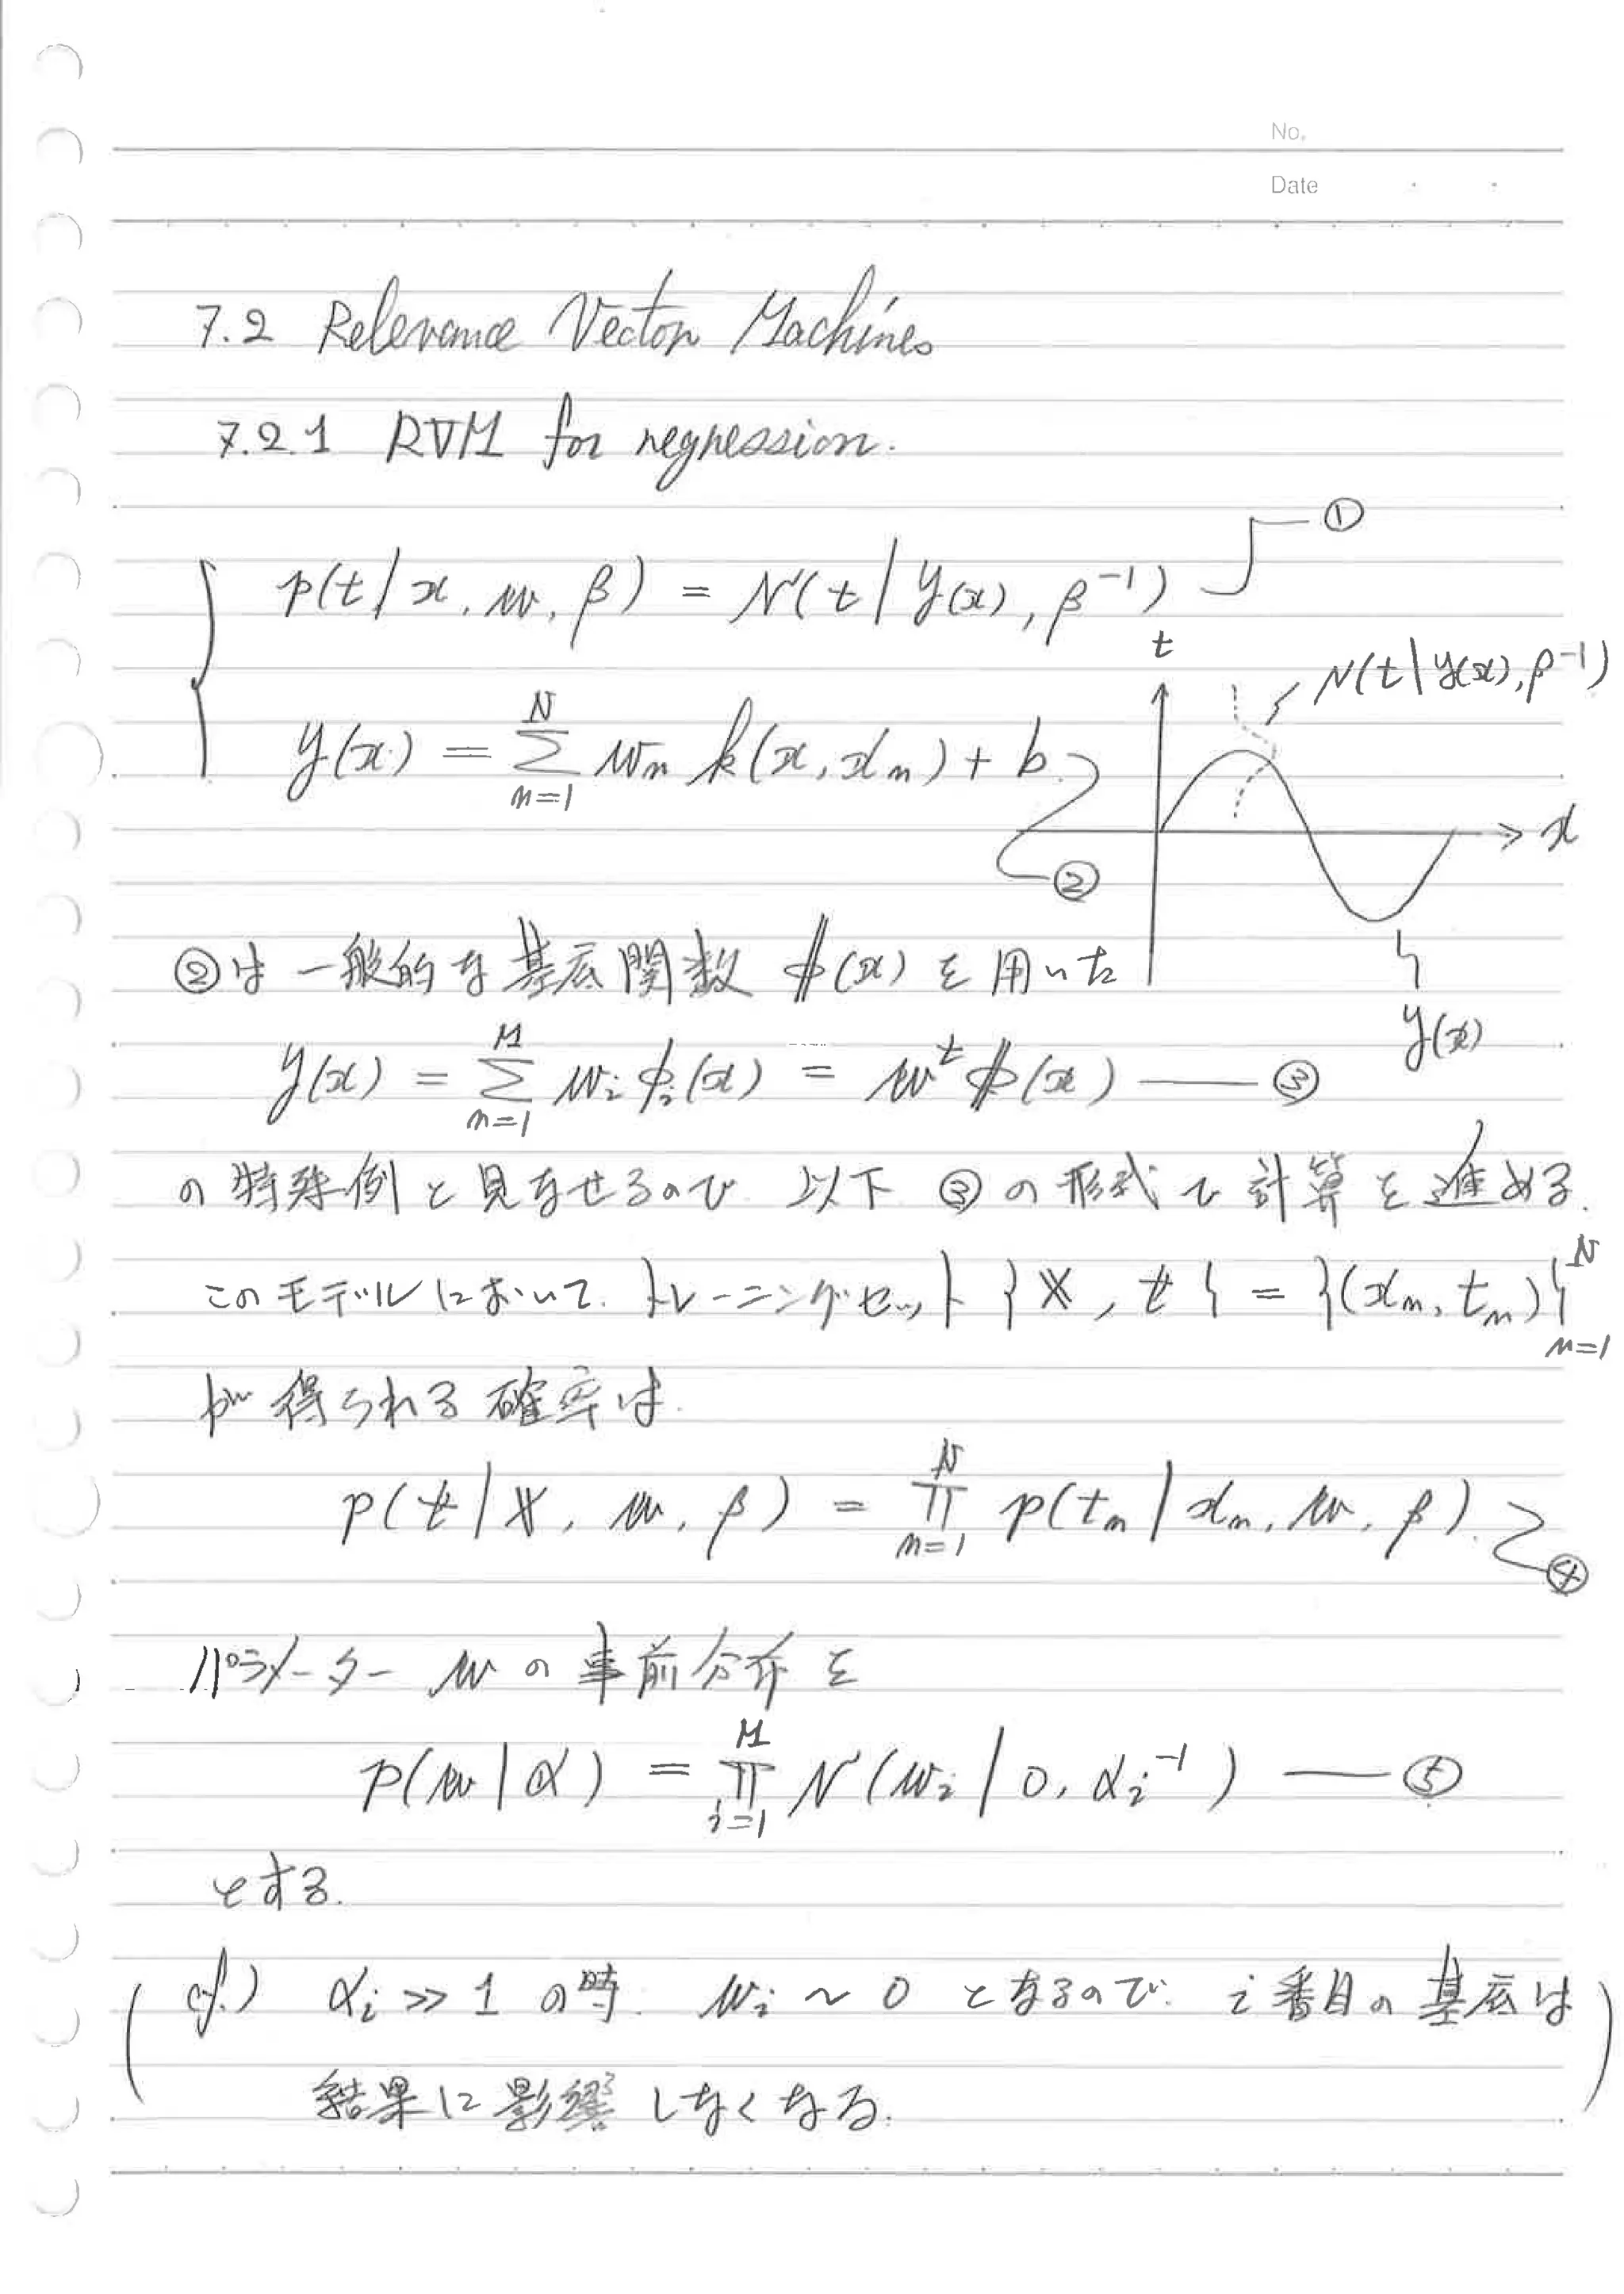 No.
Date
7.2 Relevance Vector Machines
7.2.1 RVM for regression.
p(t|x, w, β) = N(t|y(x), β⁻¹) ①
t
N(t|y(x), β⁻¹)
y(x) = Σ_{n=1}^{N} w_n k(x, x_n) + b.
x
②
②は 一般的な基底関数 φ(x) を用いた
y(x)
y(x) = Σ_{n=1}^{M} w_i φ_i(x) = w^t φ(x) —— ③
の特殊例と見なせるので. 以下 ③の形式で計算を進める.
このモデルにおいて. トレーニングセット {X, t} = {(x_n, t_n)}_{n=1}^{N}
が得られる確率は.
p(t|X, w, β) = Π_{n=1}^{N} p(t_n|x_n, w, β). ④
パラメーター w の事前分布を
p(w|α) = Π_{i=1}^{M} N(w_i|0, α_i⁻¹) —— ⑤
とする.
(cf.) α_i ≫ 1 の時. w_i ~ 0 となるので. i番目の基底は
結果に影響しなくなる.)